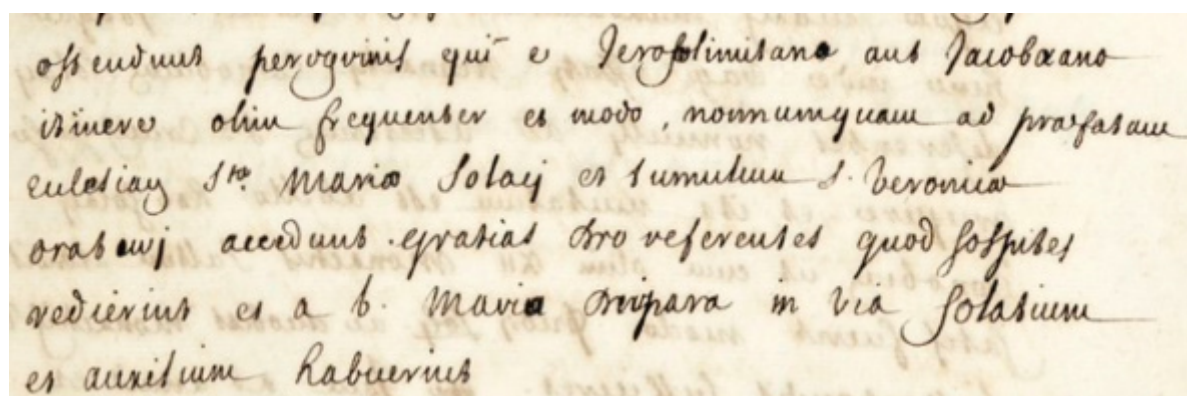 ostendunt peregrinis qui e Jerosolimitano aut Jacobæano
itinere olim frequenter et modo, nonnumquam ad præfatam
ecclesiam Stæ. Mariæ Solacij et tumulum S. Veronicæ
oraturj accedunt. gratias Deo referentes quod sospites
redierint et a b. Maria Deipara in via solatium
et auxilium habuerint